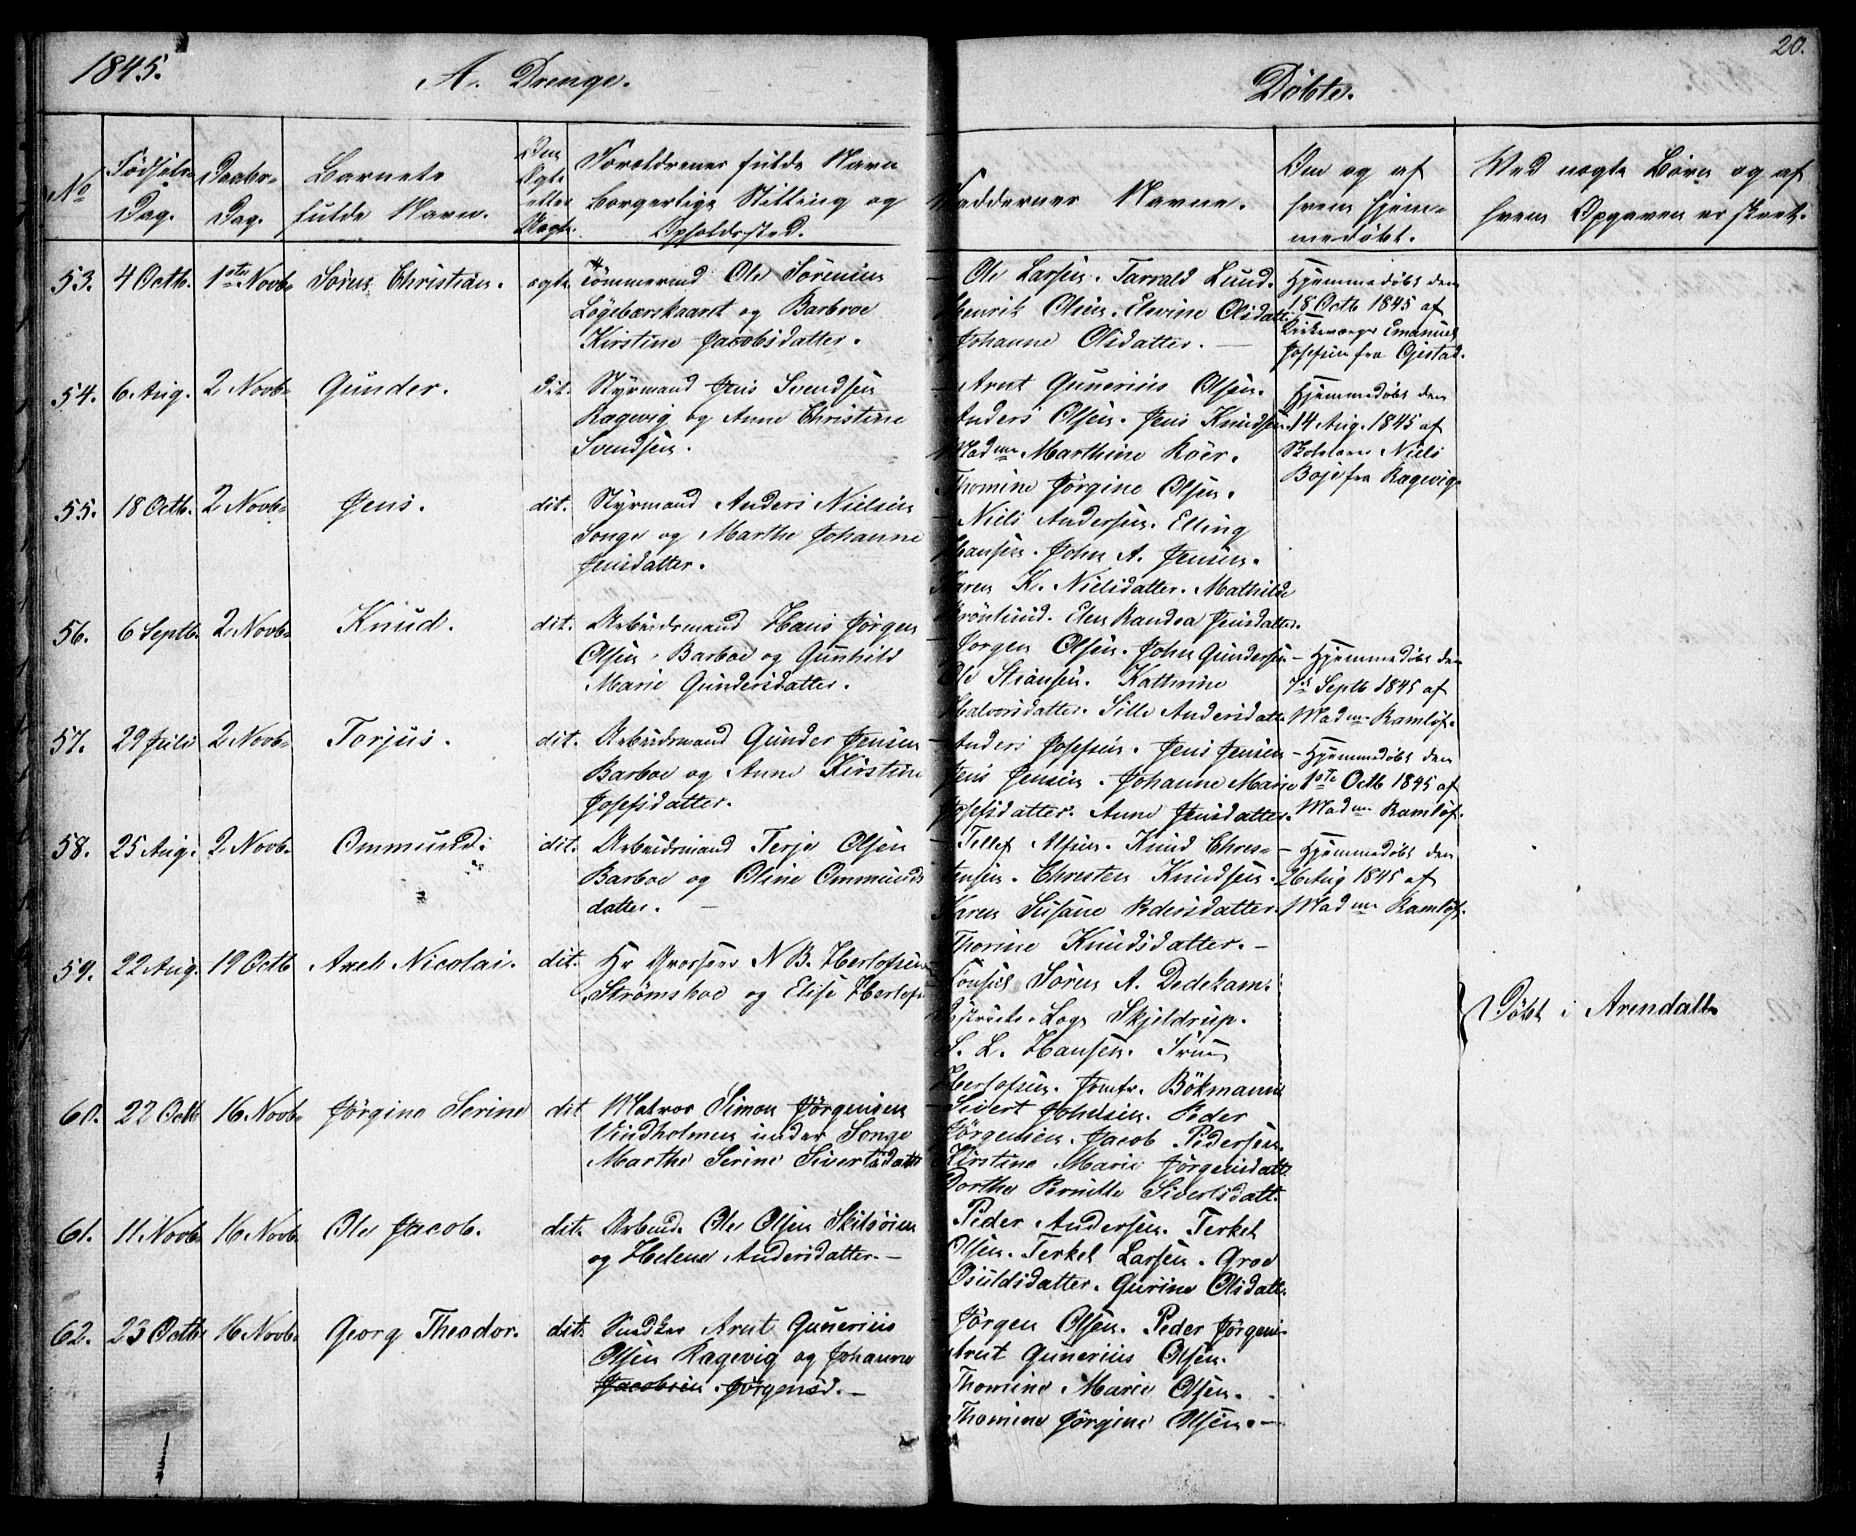 1845. A. Drenge. Döbte. 20.
No
Fødsels-
Dag.
Daabs-
Dag.
Barnets
fulde Navn.
Om
Ægte
eller
Uægte.
Forældrenes fulde Navn
Borgerlige Stilling og
Opholdssted.
Faddernes Navne.
Om og af
hvem hjem-
medöbt.
Ved uægte Börn og af
hvem Opgaven er skeet.
53. 4 Octb. 1ste Novb. Sören Christian. ægte. Tömmermd Ole Sörensen
Lögebærskaaret og Barbroe
Kirstine Jacobsdatter.
Ole Larsen. Tarvald Lund.
Henrik Olsen. Elevine Olsdatt.
Johanne Olsdatter. —
Hjemmedöbt den
18 Octb 1845 af
Kirkeværge Emanuel
Josefsen fra Gjestad.
54. 6 Aug. 2 Novb. Gunder. dit. Styrmand Jens Svendsen
Kagevig og Anne Christine
Svendsen.
Arnt Gunerius Olsen.
Anders Olsen. Jens Knudsen
Madme Marthine Röer.
Thomine Jörgine Olsen.
Hjemmedöbt den
14 Aug. 1845 af
Skolelærer Niels
Boje fra Kagevig.
55. 18 Octb. 2 Novb. Jens. dit. Styrmand Anders Nielsen
Songe og Marthe Johanne
Jensdatter.
Niels Andersen. Elling
Hansen. John A. Jensen.
Karen K. Nielsdatter. Mathilde
Grönlund. Elen Randea Jensdatter.
56. 6 Septb. 2 Novb. Knud. dit. Arbeidsmand Hans Jörgen
Olsen, Barboe og Gunhild
Marie Gundersdatter.
Jörgen Olsen. John Gundersen
Ole Stiansen. Kathrine
Halvorsdatter. Sille Andersdatt.
Hjemmedöbt den
7de Septb 1845 af
Madme Ramlöf.
57. 29 Juli 2 Novb. Torjus. dit. Arbeidsmand Gunder Jensen
Barboe og Anne Kirstine
Josefsdatter.
Anders Josefsen. Jens Jensen
Jens Jensen. Johanne Marie
Josefsdatter. Anne Jensdatter.
Hjemmedöbt den
1ste Octb 1845 af
Madme Ramlöf.
58. 25 Aug. 2 Novb. Ommund. dit. Arbeidsmand Terje Olsen
Barboe og Oline Ommunds
datter. —
Tellef Olsen. Knud Chres-
tensen. Chresten Knudsen.
Karen Susane Pedersdatter.
Thorine Knudsdatter. —
Hjemmedöbt den
26 Aug 1845 af
Madme Ramlöf.
59. 22 Aug. 19 Octb Axel Nicolai. dit. Hr Grosserer N B. Herlofsen
Strömsboe og Elise Herlofs
Consul Sören A. Dedekam.
Districts-Læge Skjeldrup.
S. L. Hansen. Frue
Herlofsen. Jomfr. Bökmann
Döbt i Arendall.
60. 22 Octb 16 Novb. Jörgine Serine dit Matros Simon Jörgensen
Vindholmen under Songe
Marthe Serine Sivertsdatt
Sivert Johnsen. Peder
Jörgensen. Jacob Pedersen.
Kirstine Marie Jörgensdatt.
Dorthe Pernille Sivertsdatt.
61. 11 Novb. 16 Novb. Ole Jacob. dit. Arbmd. Ole Olsen Skilsöien
og Helene Andersdatter. —
Peder Andersen. Terkel
Olsen. Terkel Larsen. Groe
Osuldsdatter. Gurine Olsdatt.
62. 23 Octb. 16 Novb. Georg Theodor. dit. Snedker Arnt Gunerius
Olsen Kagevig og Johanne
Jacobsen. Jörgensd. —
Jörgen Olsen. Peder Jörgens.
Arnt Gunerius Olsen.
Thomine Marie Olsen.
Thomine Jörgine Olsen. —